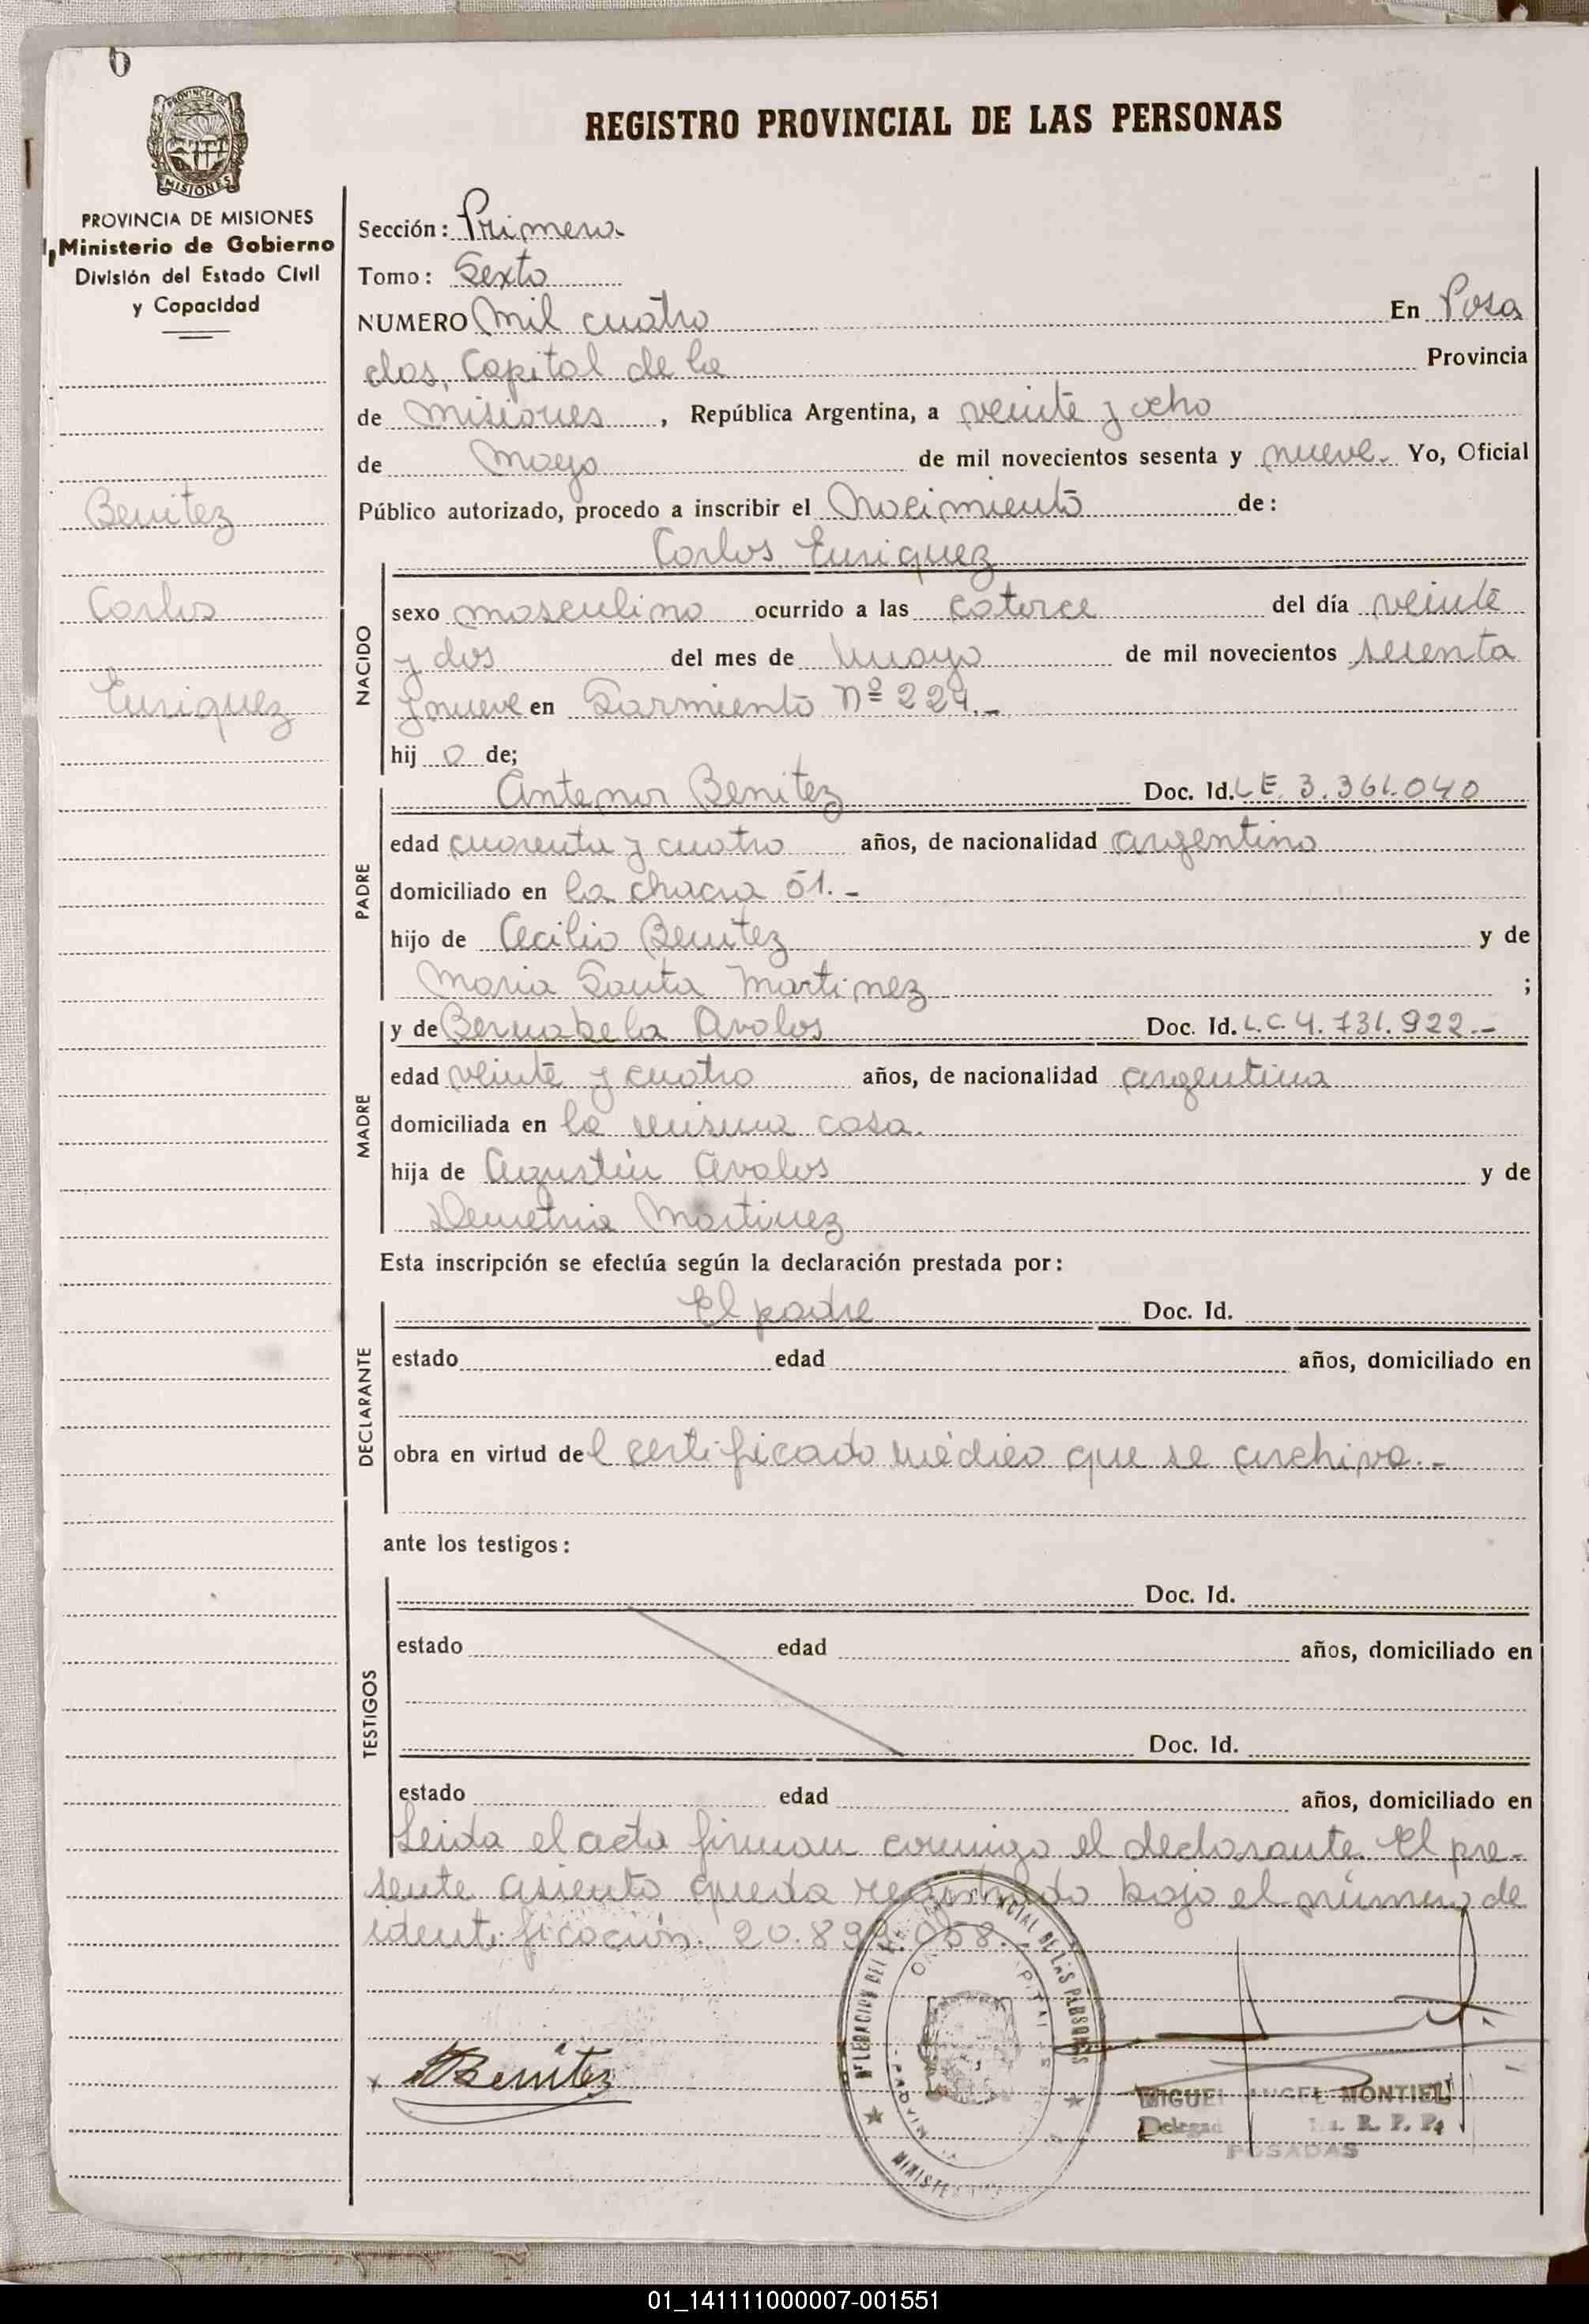 6
REGISTRO PROVINCIAL DE LAS PERSONAS
PROVINCIA DE
MISIONES
PROVINCIA DE MISIONES
Ministerio de Gobierno
División del Estado Civil
y Capacidad
Benitez
Carlos
Enriquez
Sección: Primera
Tomo: Sexto
NUMERO Mil cuatro En Posa
das, Capital de la Provincia
de Misiones, República Argentina, a veinte y ocho
de Mayo de mil novecientos sesenta y nueve. Yo, Oficial
Público autorizado, procedo a inscribir el Nacimiento de:
Carlos Enriquez
NACIDO
sexo masculino ocurrido a las catorce del día veinte
y dos del mes de Mayo de mil novecientos sesenta
y nueve en Sarmiento Nº 224.-
hij o de;
PADRE
Antenor Benitez Doc. Id. L E. 3.361.040
edad cuarenta y cuatro años, de nacionalidad argentino
domiciliado en la chacra 51.-
hijo de Cecilio Benitez y de
Maria Santa Martinez ;
MADRE
y de Bernabela Avalos Doc. Id. L.C. 4.731.922.-
edad veinte y cuatro años, de nacionalidad argentina
domiciliada en la misma casa.
hija de Agustín Avalos y de
Demetria Martinez
Esta inscripción se efectúa según la declaración prestada por:
DECLARANTE
El padre Doc. Id.
estado edad años, domiciliado en
obra en virtud de l certificado médico que se archiva.-
ante los testigos:
TESTIGOS
Doc. Id.
estado edad años, domiciliado en
Doc. Id.
estado edad años, domiciliado en
Leida el acta firman conmigo el declarante. El pre-
sente asiento queda registrado bajo el número de
identificación. 20.899.058.-
x ABenitez
DE LAS PERSONAS
MIGUEL ANGEL MONTIEL
Delegad R. P. P.
POSADAS
01_141111000007-001551